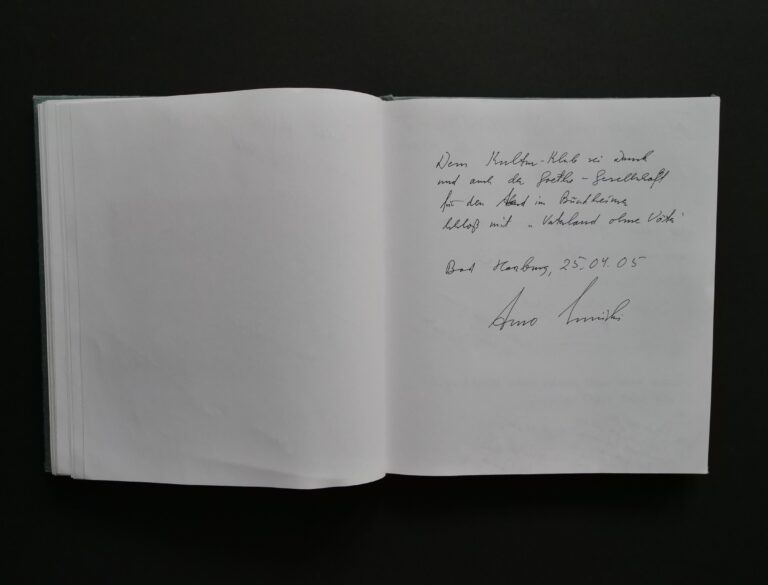 Dem Kultur-Klub sei Dank
und auch der Goethe-Gesellschaft
für den Abend im Bündheimer
Schloß mit „Vaterland ohne Väter"
Bad Harzburg, 25.04.05
Arno Surminski